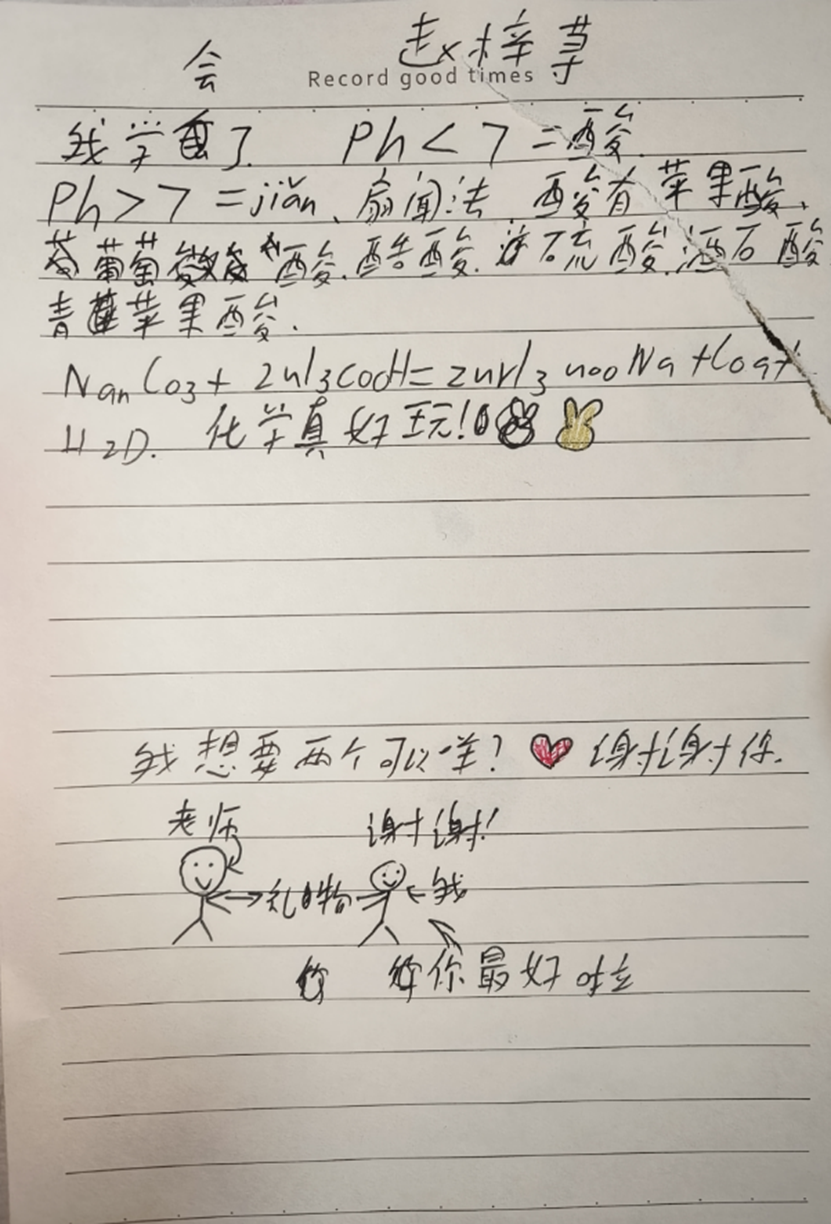 会 赵梓荨
Record good times
我学了 Ph<7=酸.
Ph>7=jiǎn、扇闻法 酸有苹果酸、
葡萄酸.醋酸.硫酸.酒石酸
青苹果酸.
H2O. 化学真好玩!
我想要两个可以咩? 谢谢你.
老师 谢谢!
礼物 我
你最好啦